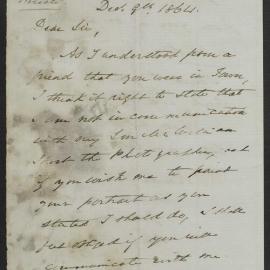 Dec. 9th 1864.
Dear Sir,
As I understood from a
friend that you were in Town,
I think it right to state that
I am not in communication
with my Son
the Photographer, &
if you wish me to paint
your portrait as you
stated I should do, I shall
feel obliged if you will
communicate with me